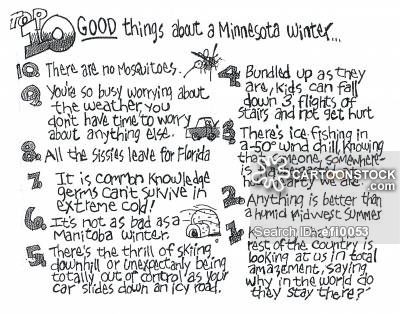 TOP 10 GOOD things about a Minnesota winter...
10. There are no Mosquitoes.
9. You're so busy worrying about
the weather, you
don't have time to worry
about anything else.
8. All the sissies leave for Florida
7. It is common knowledge
germs can't survive in
extreme cold!
6. It's not as bad as a
Manitoba winter.
5. There's the thrill of skiing
downhill or unexpectantly being
totally out of control as your
car slides down an icy road.
4. Bundled up as they
are, kids can fall
down 3 flights of
stairs and not get hurt
3. There's ice fishing in
a -50° wind chill, knowing
that someone, somewhere
is
party we are.
2. Anything is better than
a humid midwest summer
1.
rest of the country is
looking at us in total
amazement, saying
why in the world do
they stay there?"
CARTOONSTOCK
.com
Search ID: aefl0053